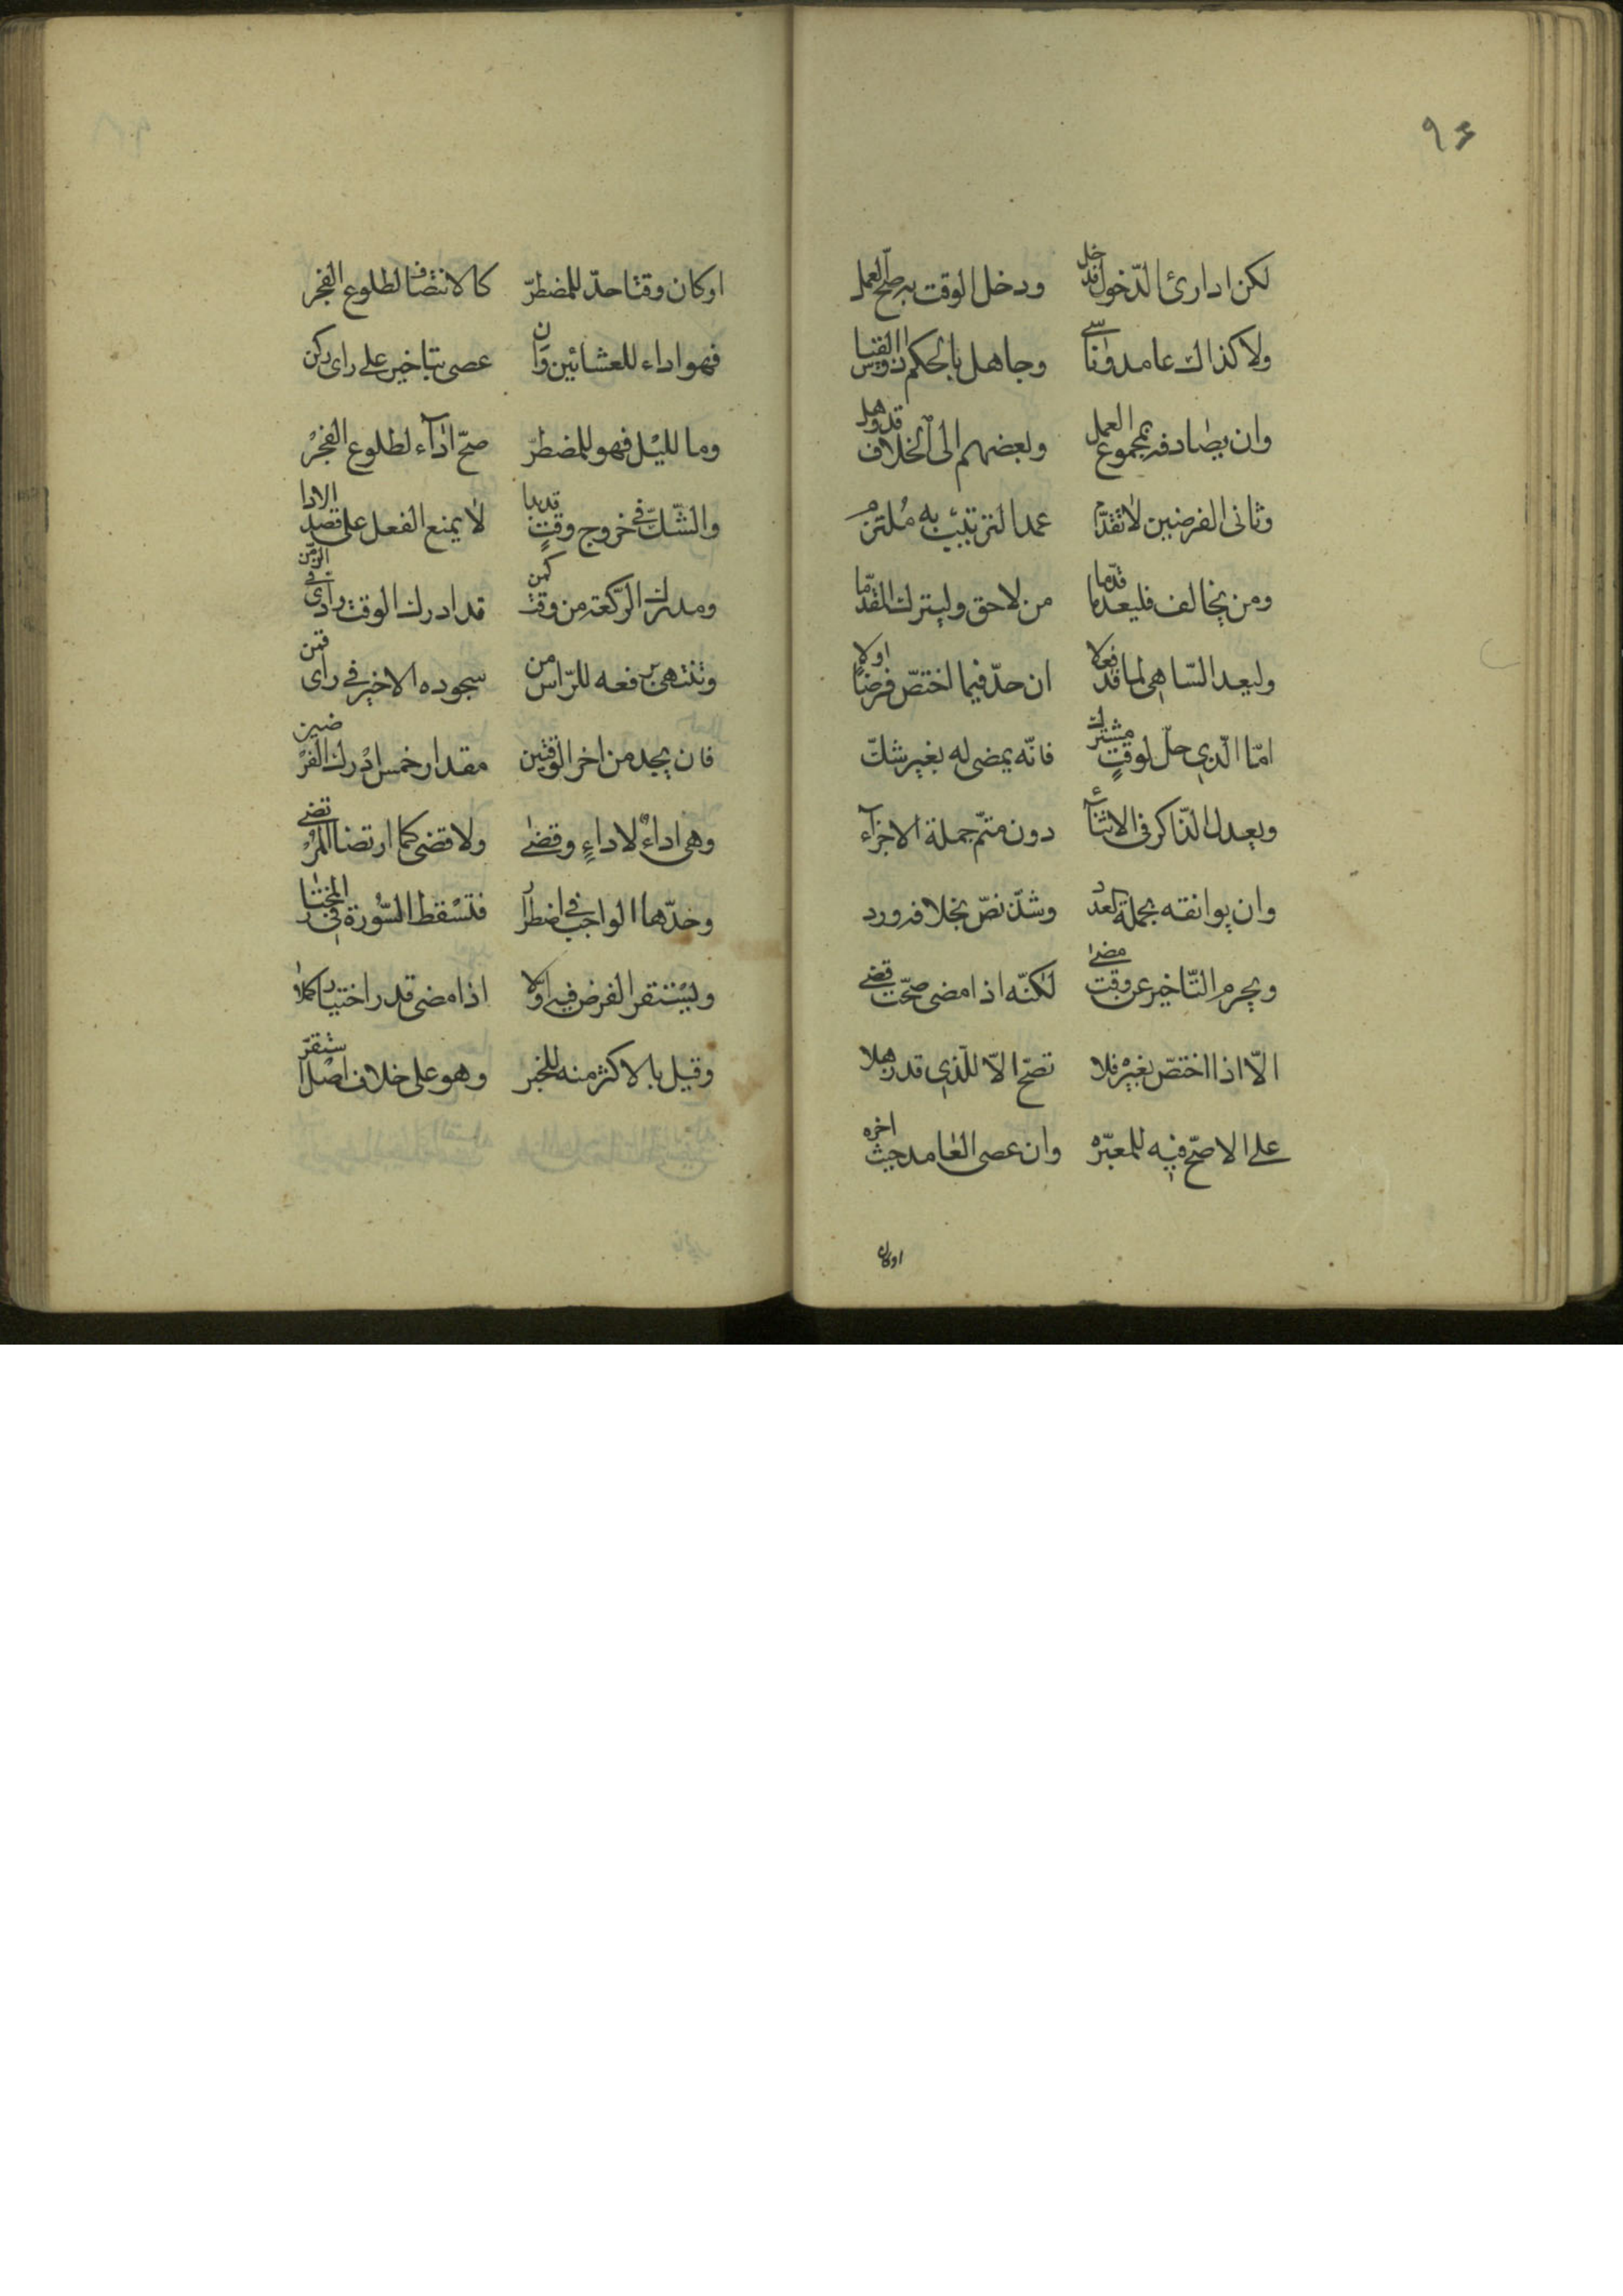 ۹۶
لكن اذا رئ الدّخول قد دخل ودخل الوقت به صحّ العمل
ولا كذاك عامد وناسى وجاهل بالحكم ذو القياس
وان يصادفه بمجموع العمل وبعضهم الى الخلاف قد وهل
وثانى الفرضين لا تقدّم عمدا لترتيب به ملتزم
ومن يخالف فليعد ما قدّما من لاحق وليترك المقدّما
وليعد السّاهى لما قد فعلا ان حدّ فيما اختصّ فرضًا اولا
امّا الّذي حلّ لوقتٍ مشترك فانّه يمضى له بغير شكّ
ويعدل الذّاكر فى الاثناء دون متمّ جملة الاجزآء
وان يوافقه بجملة يعد وشذّ نصّ بخلافه ورد
ويحرم التّاخير عن وقت مضى لكنّه اذا مضى صحّت قضى
الّا اذا اختصّ بغير فلا تصحّ الّا للّذي قد ذهلا
على الاصحّ فيه للمعبّره وان عصى العامد حيث اخره
او كان
او كان وقتا حدّ للمضطرّ كالانتصاف لطلوع الفجر
فهو اداء للعشائين وان عصى بتاخير على راى ركن
وما لليل فهو للمضطرّ صحّ ادآء لطلوع الفجر
والشّك فى خروج وقتٍ قد بدا لا يمنع الفعل على قصد الادا
ومدرك الرّكعة من وقت كمن قد ادرك الوقت ادى فى الزّمن
وتنتهى برفعه للرّاس من سجوده الاخير فى راى قمن
فان يجد من اخر الوقتين مقدار خمس ادرك الفرضين
وهى اداءٌ لا اداءٍ وقضى ولا قضى كما ارتضا المرتضى
وحدّها الواجب فى اضطرار فتسقط السّورة فى المختار
ويستقر الفرض فيه اوّلا اذا مضى قدر اختيار كملا
وقيل بالاكثر منه للخبر وهو على خلاف اصل استقرّ